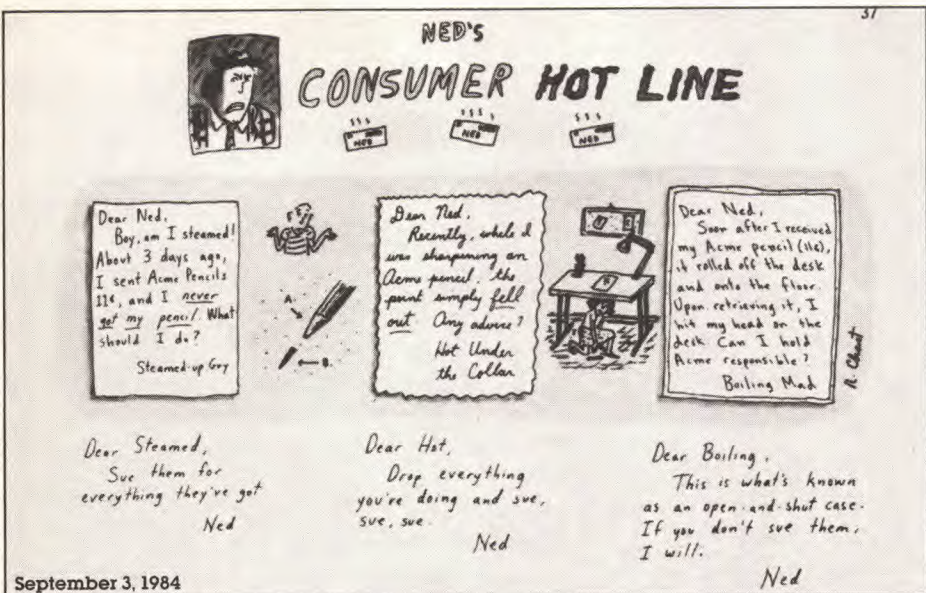 37
NED'S
CONSUMER HOT LINE
NED
NED
NED
Dear Ned,
Boy, am I steamed!
About 3 days ago,
I sent Acme Pencils
11¢, and I never
got my pencil. What
should I do?
Steamed-up Guy
A.
B.
Dear Ned,
Recently, while I
was sharpening an
Acme pencil, the
point simply fell
out. Any advice?
Hot Under
the Collar
Dear Ned,
Soon after I received
my Acme pencil (11¢),
it rolled off the desk
and onto the floor.
Upon retrieving it, I
hit my head on the
desk. Can I hold
Acme responsible?
Boiling Mad
R. Chast
Dear Steamed,
Sue them for
everything they've got
Ned
Dear Hot,
Drop everything
you're doing and sue,
sue, sue.
Ned
Dear Boiling,
This is what's known
as an open-and-shut case.
If you don't sue them,
I will.
Ned
September 3, 1984